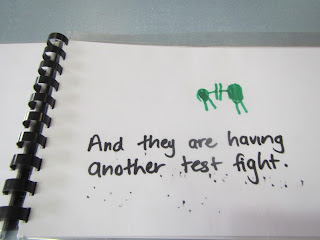 And they are having
another test fight.